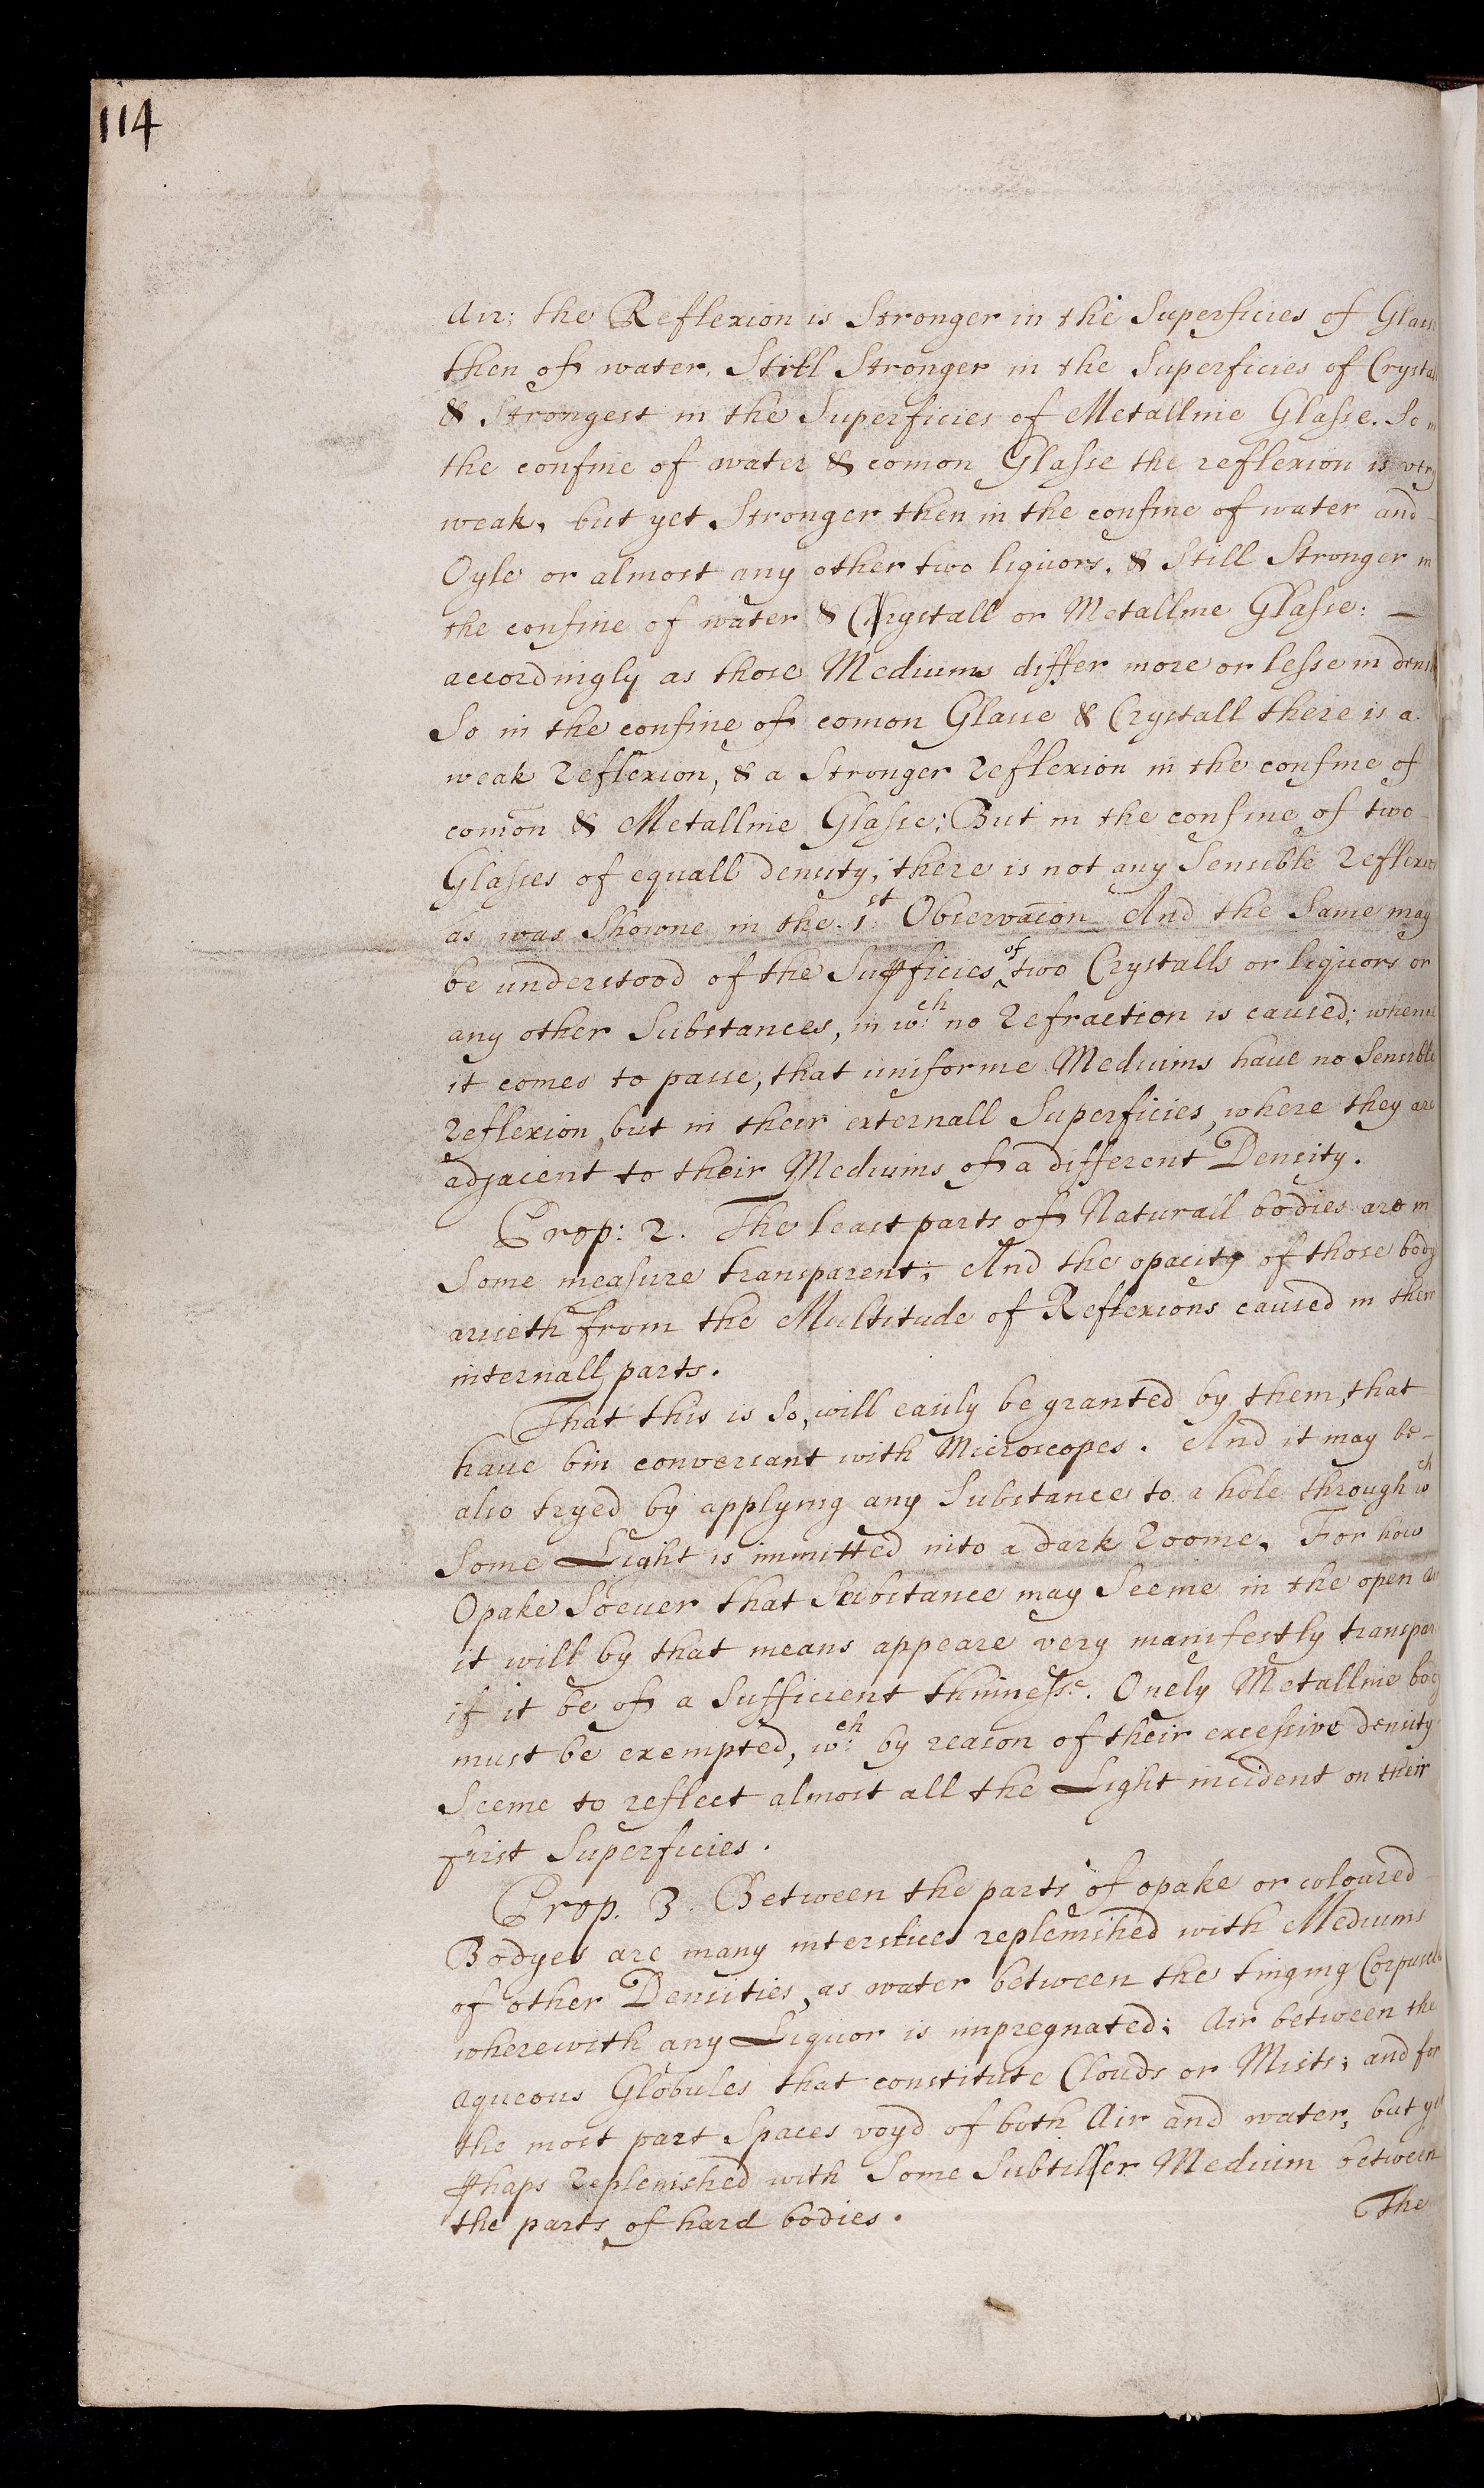 114
Air; the Reflexion is Stronger in the Superficies of Glass
then of water, Still Stronger in the Superficies of Crystall
& Strongest in the Superficies of Metalline Glasse. So in
the confine of water & comon Glasse the reflexion is very
weak, but yet Stronger then in the confine of water and
Oyle or almost any other two liquors, & Still Stronger in
the confine of water & Chrystall or Metalline Glasse: —
accordingly as those Mediums differ more or lesse in
So in the confine of comon Glasse & Crystall there is a
weak reflexion, & a Stronger reflexion in the confine of
comōn & Metalline Glasse; But in the confine of two
Glasses of equall density, there is not any Sensible reflexion
as was Showne in the 1st Observacōn And the Same may
be understood of the Suꝑficies of two Crystalls or liquors or
any other Substances, in wch: no refraction is caused; whence
it comes to passe, that uniforme Mediums have no Sensible
reflexion but in their externall Superficies, where they are
adjacent to their Mediums of a different Density.
Prop: 2. The least parts of Naturall bodies are in
Some measure transparent; And the opacity of those body
ariseth from the Multitude of Reflexions caused in their
internall parts.
That this is So, will easily be granted by them, that
haue bin conversant with Microscopes. And it may be
also tryed by applying any Substance to a hole through wch
Some Light is immitted into a dark roome. For how
Opake Soeuer that Substance may Seeme in the open
it will by that means appeare very manifestly
if it be of a Sufficient thinnesse. Onely Metalline
must be exempted, wch: by reason of their excessive density
Seeme to reflect almost all the Light incident on their
first Superficies.
Prop. 3. Between the parts of opake or coloured
Bodyes are many interstices replenished with Mediums
of other Densities, as water between the tinging
wherewith any Liquor is impregnated; Air between the
aqueous Globules that constitute Clouds or Mists; and for
the most part Spaces voyd of both Air and water, but yet
ꝑhaps replenished with Some Subtiller Medium between
the parts of hard bodies.
The